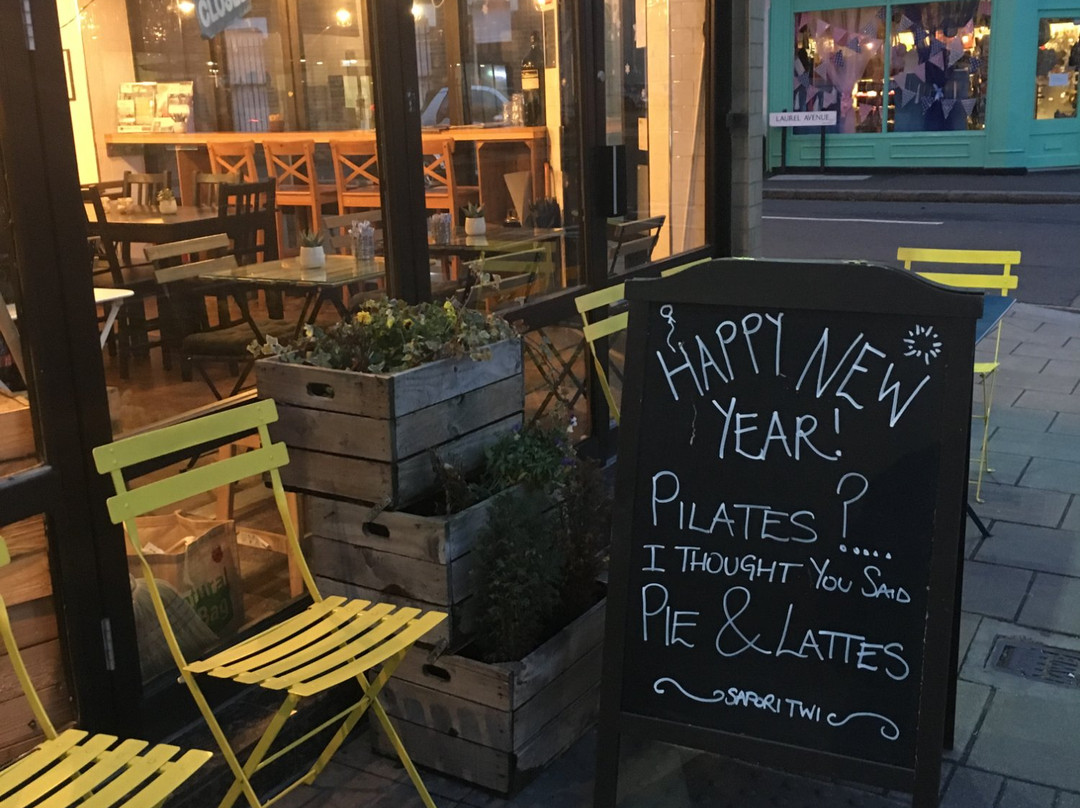 CLOSED
LAUREL AVENUE
HAPPY NEW
YEAR!
PILATES ?.....
I THOUGHT YOU SAID
PIE & LATTES
SAPORI TWI